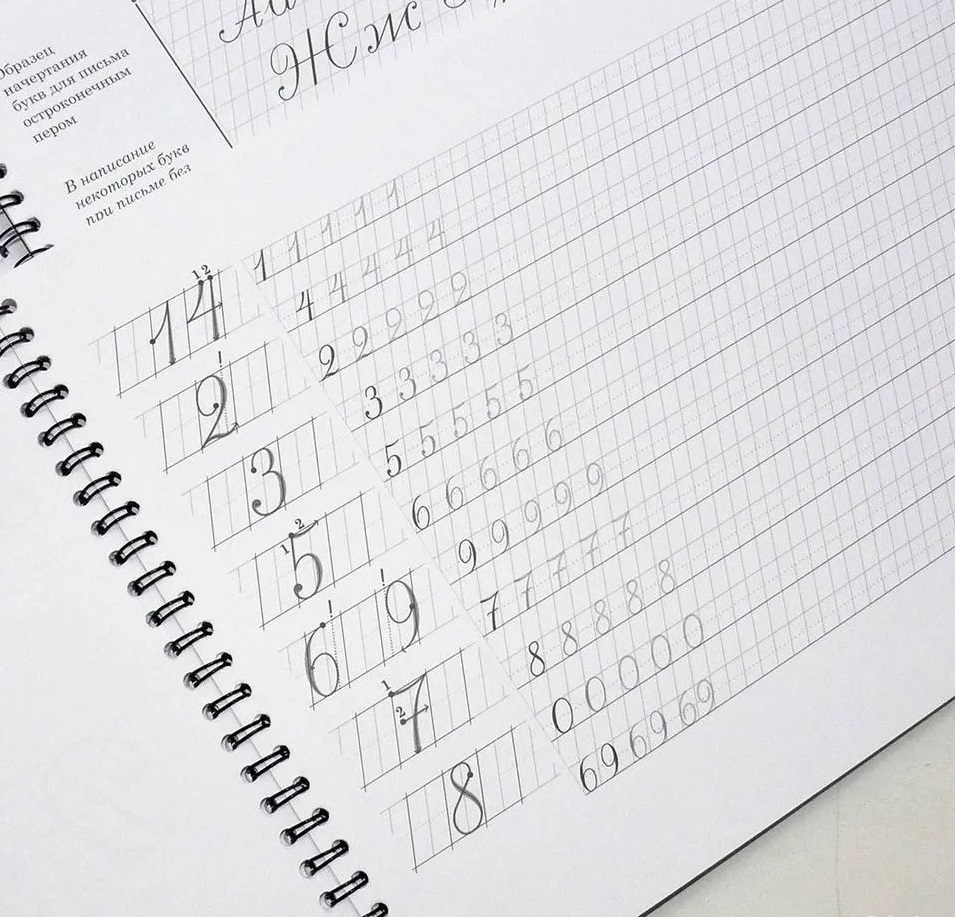 Образец
начертания
букв для письма
остроконечным
пером
В написание
некоторых букв
при письме без
Жж
1 2
14
!
2
3
1 2
5
! !
6 9
1
2
7
8
1 1 1 1 1
4 4 4 4 4
2 2 2 2 2
3 3 3 3 3
5 5 5 5 5
6 6 6 6 6
9 9 9 9 9
7 7 7 7 7
8 8 8 8 8
0 0 0 0 0
69 69 69